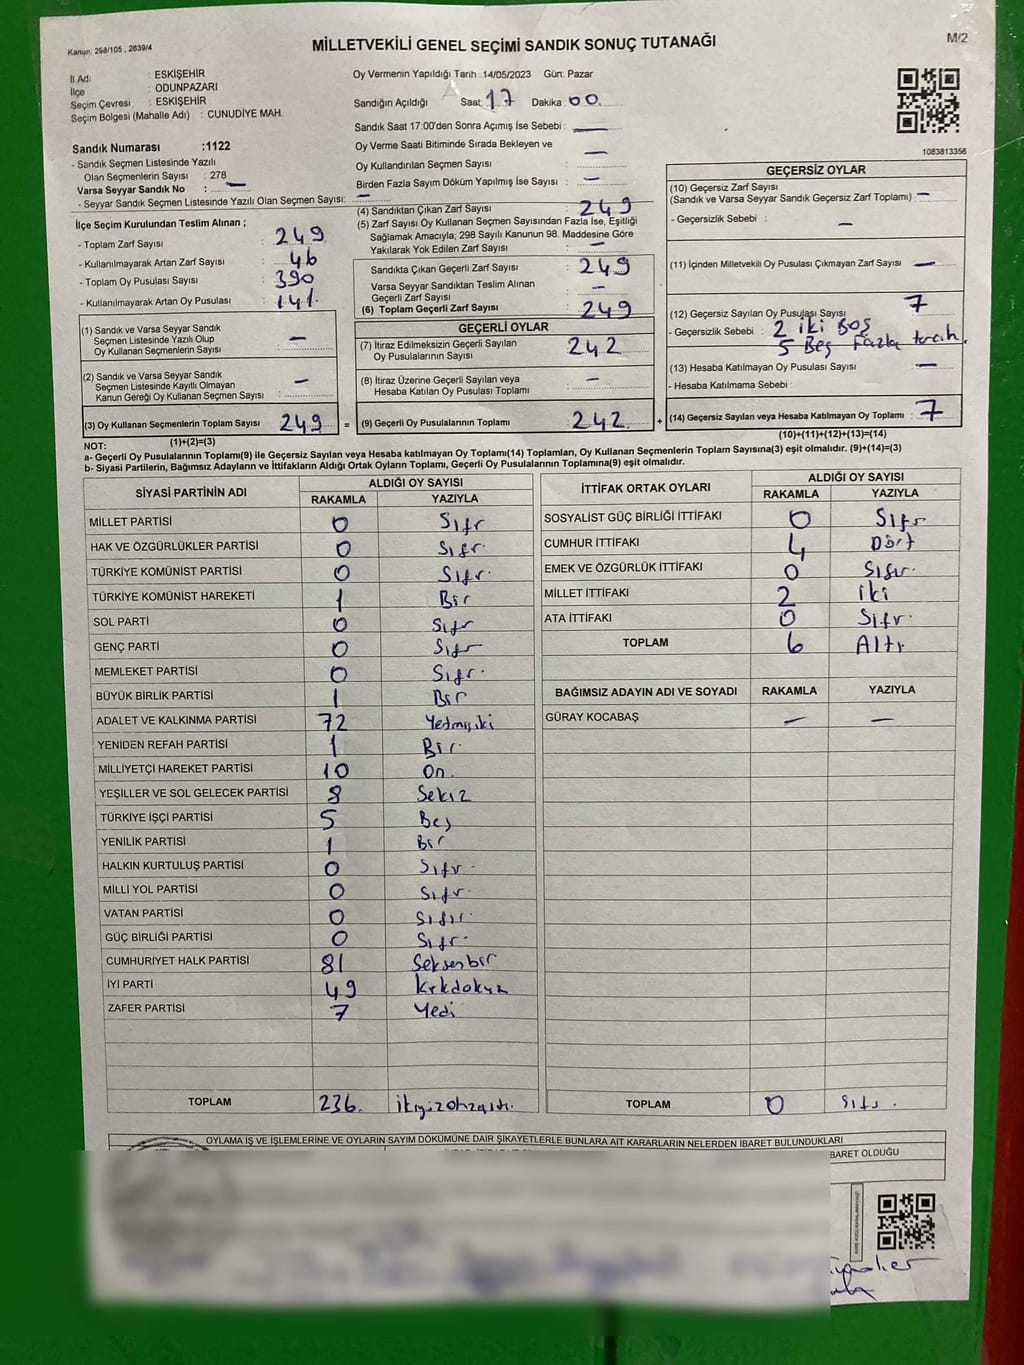 Kanun: 298/105 , 2839/4
MİLLETVEKİLİ GENEL SEÇİMİ SANDIK SONUÇ TUTANAĞI
M/2
İl Adı : ESKİŞEHİR
İlçe : ODUNPAZARI
Seçim Çevresi : ESKİŞEHİR
Seçim Bölgesi (Mahalle Adı) : CUNUDİYE MAH.
Sandık Numarası :1122
- Sandık Seçmen Listesinde Yazılı
Olan Seçmenlerin Sayısı : 278
Varsa Seyyar Sandık No : —
- Seyyar Sandık Seçmen Listesinde Yazılı Olan Seçmen Sayısı: —
İlçe Seçim Kurulundan Teslim Alınan ;
- Toplam Zarf Sayısı : 249
- Kullanılmayarak Artan Zarf Sayısı : 46
- Toplam Oy Pusulası Sayısı : 390
- Kullanılmayarak Artan Oy Pusulası : 141
(1) Sandık ve Varsa Seyyar Sandık
Seçmen Listesinde Yazılı Olup
Oy Kullanan Seçmenlerin Sayısı : —
(2) Sandık ve Varsa Seyyar Sandık
Seçmen Listesinde Kayıtlı Olmayan
Kanun Gereği Oy Kullanan Seçmen Sayısı : —
(3) Oy Kullanan Seçmenlerin Toplam Sayısı : 249 =
(1)+(2)=(3)
Oy Vermenin Yapıldığı Tarih :14/05/2023 Gün: Pazar
Sandığın Açıldığı Saat: 17 Dakika : 00
Sandık Saat 17:00'den Sonra Açımış İse Sebebi : —
Oy Verme Saati Bitiminde Sırada Bekleyen ve
Oy Kullandırılan Seçmen Sayısı : —
Birden Fazla Sayım Döküm Yapılmış İse Sayısı : —
(4) Sandıktan Çıkan Zarf Sayısı : 249
(5) Zarf Sayısı Oy Kullanan Seçmen Sayısından Fazla İse, Eşitliği
Sağlamak Amacıyla; 298 Sayılı Kanunun 98. Maddesine Göre
Yakılarak Yok Edilen Zarf Sayısı : —
Sandıkta Çıkan Geçerli Zarf Sayısı : 249
Varsa Seyyar Sandıktan Teslim Alınan
Geçerli Zarf Sayısı : —
(6) Toplam Geçerli Zarf Sayısı : 249
GEÇERLİ OYLAR
(7) İtiraz Edilmeksizin Geçerli Sayılan
Oy Pusulalarının Sayısı : 242
(8) İtiraz Üzerine Geçerli Sayılan veya
Hesaba Katılan Oy Pusulası Toplamı : —
(9) Geçerli Oy Pusulalarının Toplamı : 242 +
1083813356
GEÇERSİZ OYLAR
(10) Geçersiz Zarf Sayısı
(Sandık ve Varsa Seyyar Sandık Geçersiz Zarf Toplamı) : —
- Geçersizlik Sebebi : —
(11) İçinden Milletvekili Oy Pusulası Çıkmayan Zarf Sayısı : —
(12) Geçersiz Sayılan Oy Pusulası Sayısı : 7
- Geçersizlik Sebebi : 2 iki Boş
5 Beş Fazla tercih.
(13) Hesaba Katılmayan Oy Pusulası Sayısı : —
- Hesaba Katılmama Sebebi :
(14) Geçersiz Sayılan veya Hesaba Katılmayan Oy Toplamı : 7
(10)+(11)+(12)+(13)=(14)
NOT:
a- Geçerli Oy Pusulasının Toplamı(9) ile Geçersiz Sayılan veya Hesaba katılmayan Oy Toplamı(14) Toplamları, Oy Kullanan Seçmenlerin Toplam Sayısına(3) eşit olmalıdır. (9)+(14)=(3)
b- Siyasi Partilerin, Bağımsız Adayların ve İttifakların Aldığı Ortak Oyların Toplamı, Geçerli Oy Pusulalarının Toplamına(9) eşit olmalıdır.
SİYASİ PARTİNİN ADI ALDIĞI OY SAYISI
RAKAMLA YAZIYLA
MİLLET PARTİSİ 0 Sıfr
HAK VE ÖZGÜRLÜKLER PARTİSİ 0 Sıfr.
TÜRKİYE KOMÜNİST PARTİSİ 0 Sıfr.
TÜRKİYE KOMÜNİST HAREKETİ 1 Bir
SOL PARTİ 0 Sıfr
GENÇ PARTİ 0 Sıfr
MEMLEKET PARTİSİ 0 Sıfr.
BÜYÜK BİRLİK PARTİSİ 1 Bir
ADALET VE KALKINMA PARTİSİ 72 Yetmişiki
YENİDEN REFAH PARTİSİ 1 Bir.
MİLLİYETÇİ HAREKET PARTİSİ 10 On.
YEŞİLLER VE SOL GELECEK PARTİSİ 8 Sekiz
TÜRKİYE İŞÇİ PARTİSİ 5 Beş
YENİLİK PARTİSİ 1 Bir
HALKIN KURTULUŞ PARTİSİ 0 Sıfr.
MİLLİ YOL PARTİSİ 0 Sıfr.
VATAN PARTİSİ 0 Sıfır.
GÜÇ BİRLİĞİ PARTİSİ 0 Sıfr.
CUMHURİYET HALK PARTİSİ 81 Seksenbir
İYİ PARTİ 49 Kırkdokuz
ZAFER PARTİSİ 7 Yedi
TOPLAM 236.
İTTİFAK ORTAK OYLARI ALDIĞI OY SAYISI
RAKAMLA YAZIYLA
SOSYALİST GÜÇ BİRLİĞİ İTTİFAKI 0 Sıfr
CUMHUR İTTİFAKI 4 Dört
EMEK VE ÖZGÜRLÜK İTTİFAKI 0 Sıfır.
MİLLET İTTİFAKI 2 iki
ATA İTTİFAKI 0 Sıfır.
TOPLAM 6 Altı
BAĞIMSIZ ADAYIN ADI VE SOYADI RAKAMLA YAZIYLA
GÜRAY KOCABAŞ — —
TOPLAM 0 Sıfr.
OYLAMA İŞ VE İŞLEMLERİNE VE OYLARIN SAYIM DÖKÜMÜNE DAİR ŞİKAYETLERLE BUNLARA AİT KARARLARIN NELERDEN İBARET BULUNDUKLARI
BARET OLDUĞU